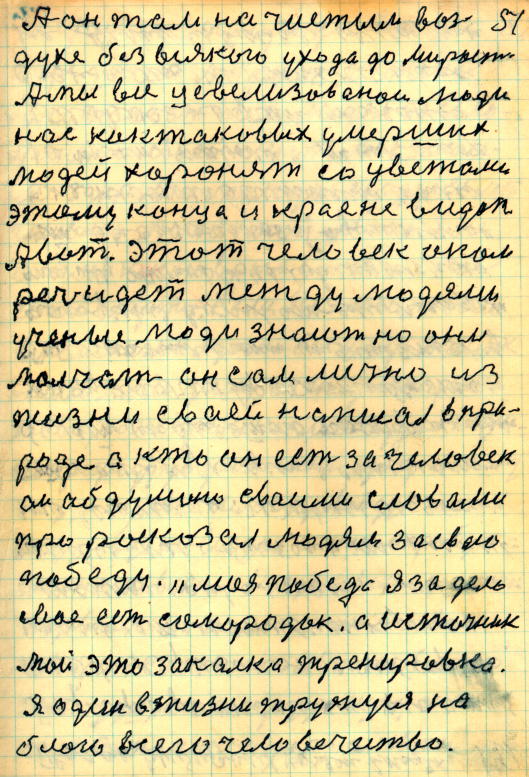 А он там на чистым воз- 51
духе без всякого ухода до мираст.
А мы все цевелизованои люди
нас как таковых умерших
людей хоронят со цветами
этому конца и краене видат
А вот. этот человек
реч идет между людями
ученые люди знают но они
молчат он сам лично из
жизни сваей написал в при-
роде а кто он ест за человек
он абдумино сваими словами
про росказал людям за сваю
победу. „моя победа я за дель
свое ест самородък. а источник
мой это закалка тренировка.
я один в жизни тружуся на
благо всего человечиство.